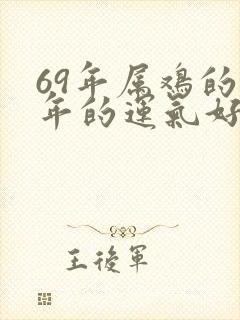 69年属鸡的
年的運氣好
王後軍